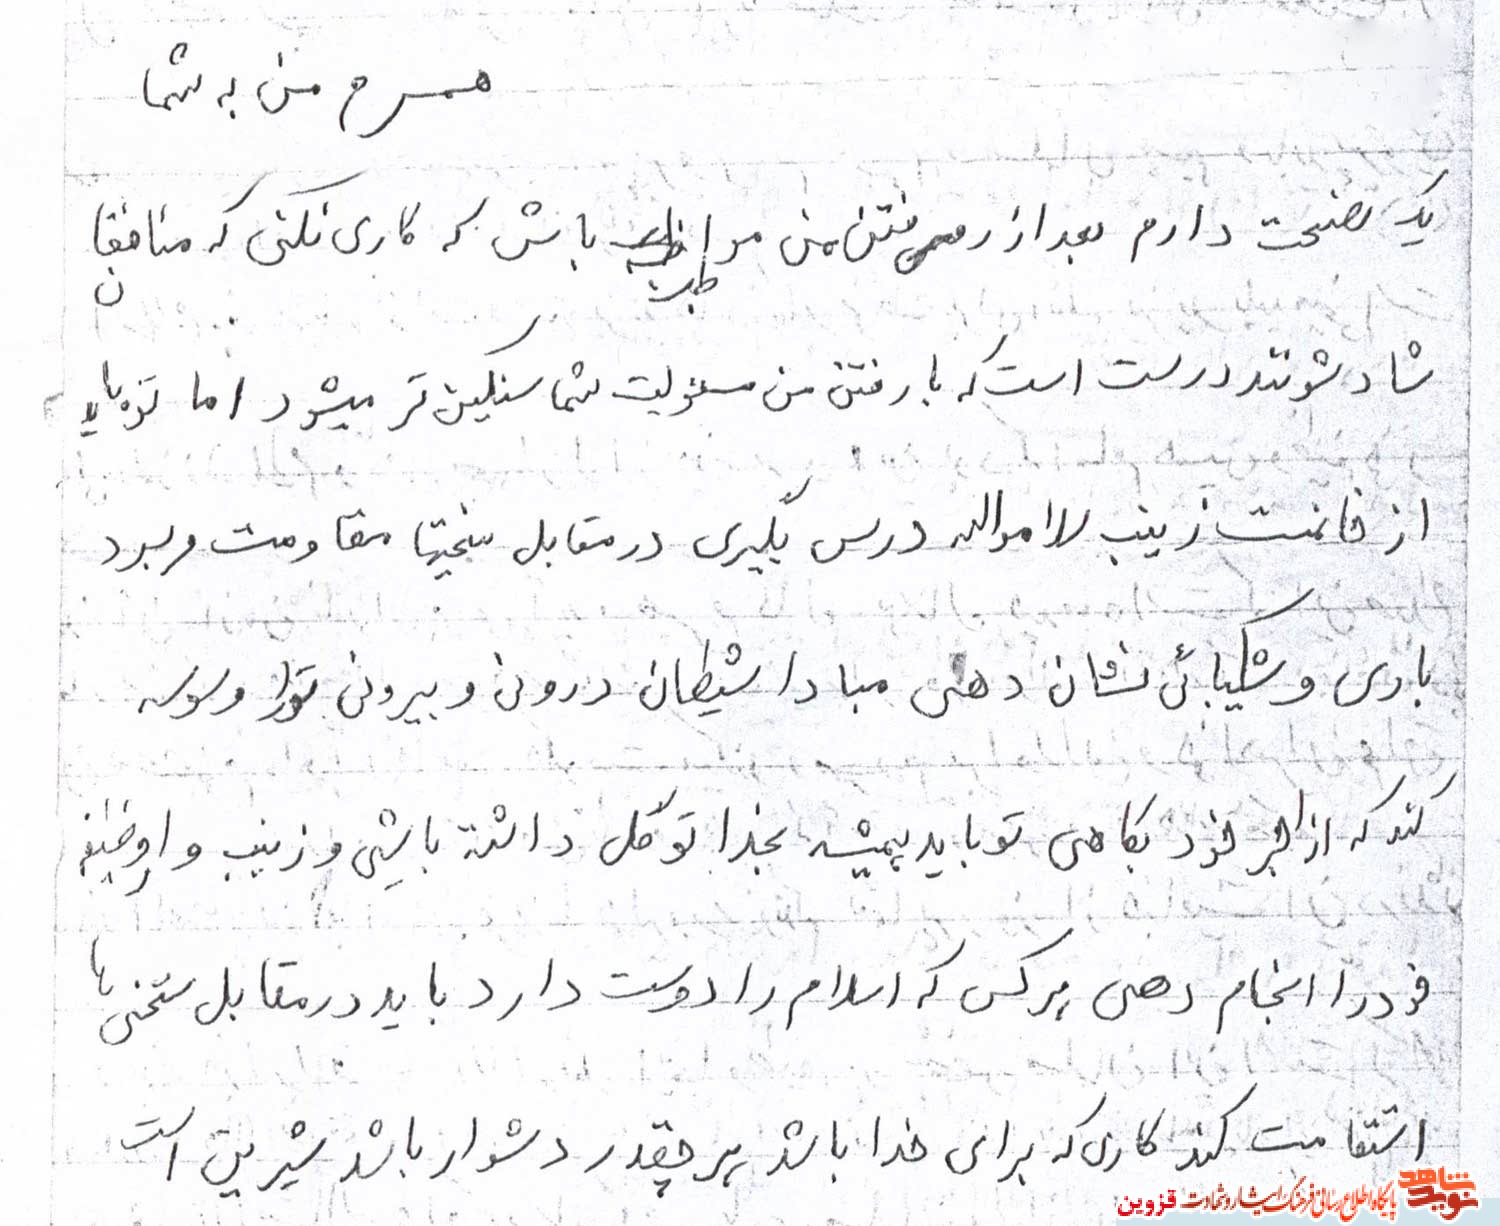 همسرم من به شما
یک نصیحت دارم بعد از رفتن من مواظب باش که کاری نکنی که منافقان
شاد شوند درست است که با رفتن من مسئولیت شما سنگین تر میشود اما تو باید
از زینب درس بگیری در مقابل سختیها مقاومت و برد
باری و شکیبائی نشان دهی مبادا شیطان درونی و بیرونی تو را وسوسه
کند که از اجر خود بکاهی تو باید همیشه بخدا توکل داشته باشی و زینب وار وظیفه
خود را انجام دهی هر کس که اسلام را دوست دارد باید در مقابل سختی ها
استقامت کند کاری که برای خدا باشد هر چقدر دشوار باشد شیرین است
نوید شاهد پایگاه اطلاع رسانی فرهنگ ایثار و شهادت قزوین